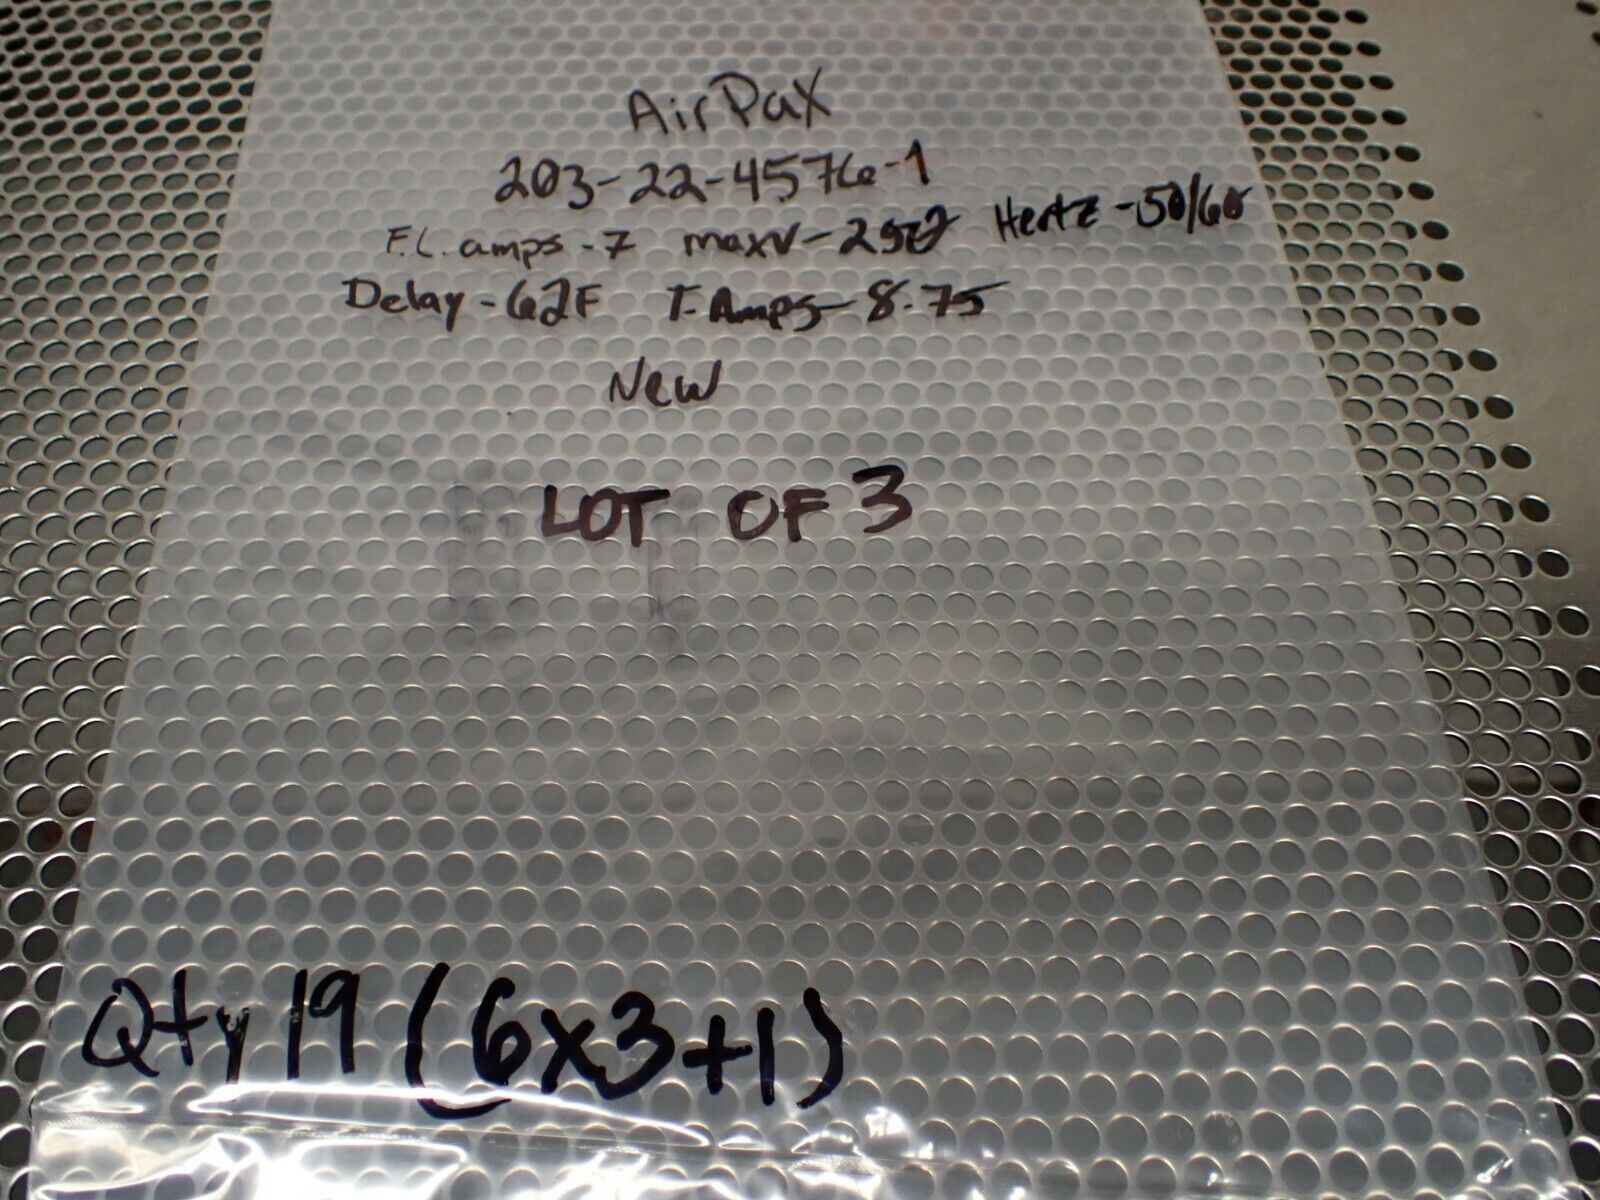 AirPax
203-22-4576-1
F.L. amps - 7 maxV - 250 Hertz - 50/60
Delay - 62F T. Amps - 8.75
New
LOT OF 3
Qty 19 (6x3+1)